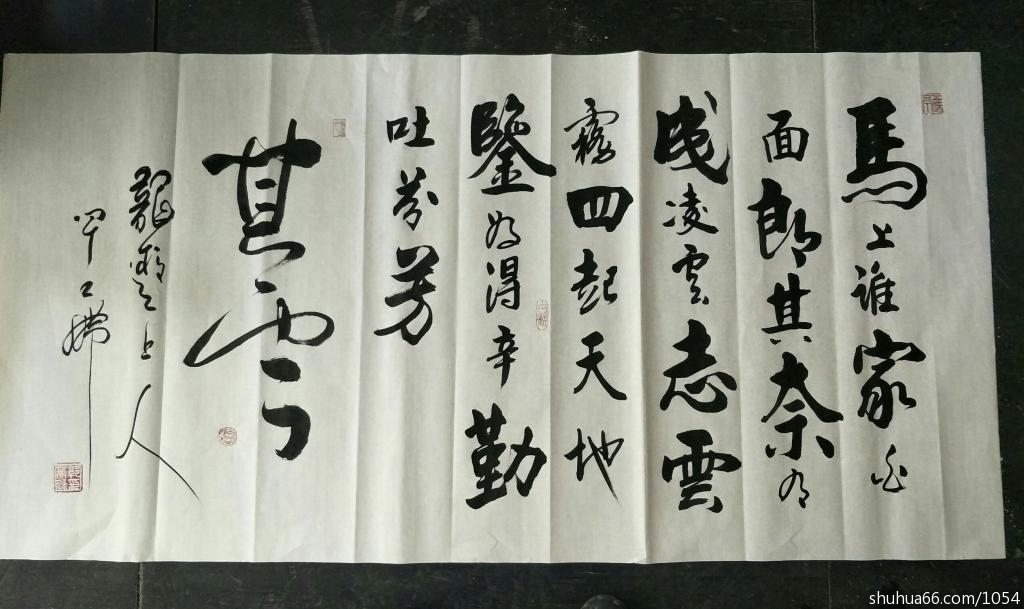 馬上誰家白
面郎其奈有
残凌雲志雲
霧四起天地
鑒為得辛勤
吐芬芳
其雲
龍
上人
shuhua66.com/1054